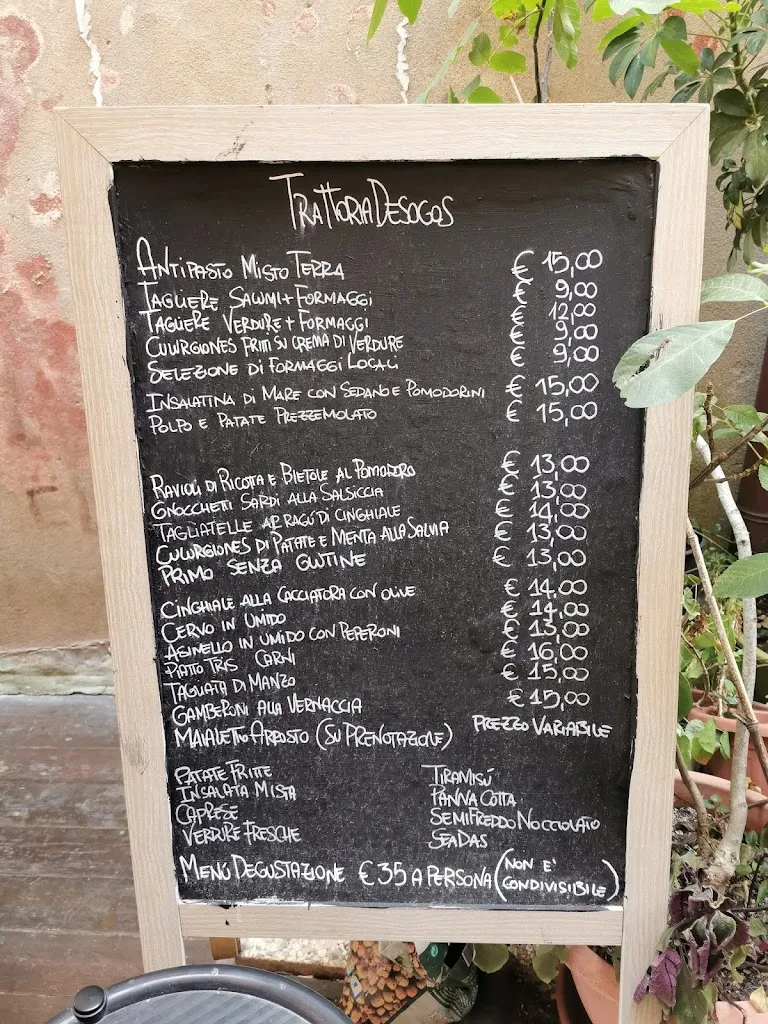 TRATTORIA DESOGOS
ANTIPASTO MISTO TERRA € 15,00
TAGLIERE SALUMI + FORMAGGI € 9,00
TAGLIERE VERDURE + FORMAGGI € 12,00
CULURGIONES FRITTI SU CREMA DI VERDURE € 9,00
SELEZIONE DI FORMAGGI LOCALI € 9,00
INSALATINA DI MARE CON SEDANO E POMODORINI € 15,00
POLPO E PATATE PREZZEMOLATO € 15,00
RAVIOLI DI RICOTTA E BIETOLE AL POMODORO € 13,00
GNOCCHETTI SARDI ALLA SALSICCIA € 13,00
TAGLIATELLE AL RAGÚ DI CINGHIALE € 14,00
CULURGIONES DI PATATE E MENTA ALLA SALVIA € 13,00
PRIMO SENZA GLUTINE € 13,00
CINGHIALE ALLA CACCIATORA CON OLIVE € 14,00
CERVO IN UMIDO € 14,00
ASINELLO IN UMIDO CON PEPERONI € 13,00
PIATTO TRIS CARNI € 16,00
TAGLIATA DI MANZO € 15,00
GAMBERONI ALLA VERNACCIA € 15,00
MAIALETTO ARROSTO (SU PRENOTAZIONE) PREZZO VARIABILE
PATATE FRITTE TIRAMISÚ
INSALATA MISTA PANNA COTTA
CAPRESE SEMIFREDDO NOCCIOLATO
VERDURE FRESCHE SEADAS
MENÚ DEGUSTAZIONE € 35 A PERSONA (NON E' CONDIVISIBILE)